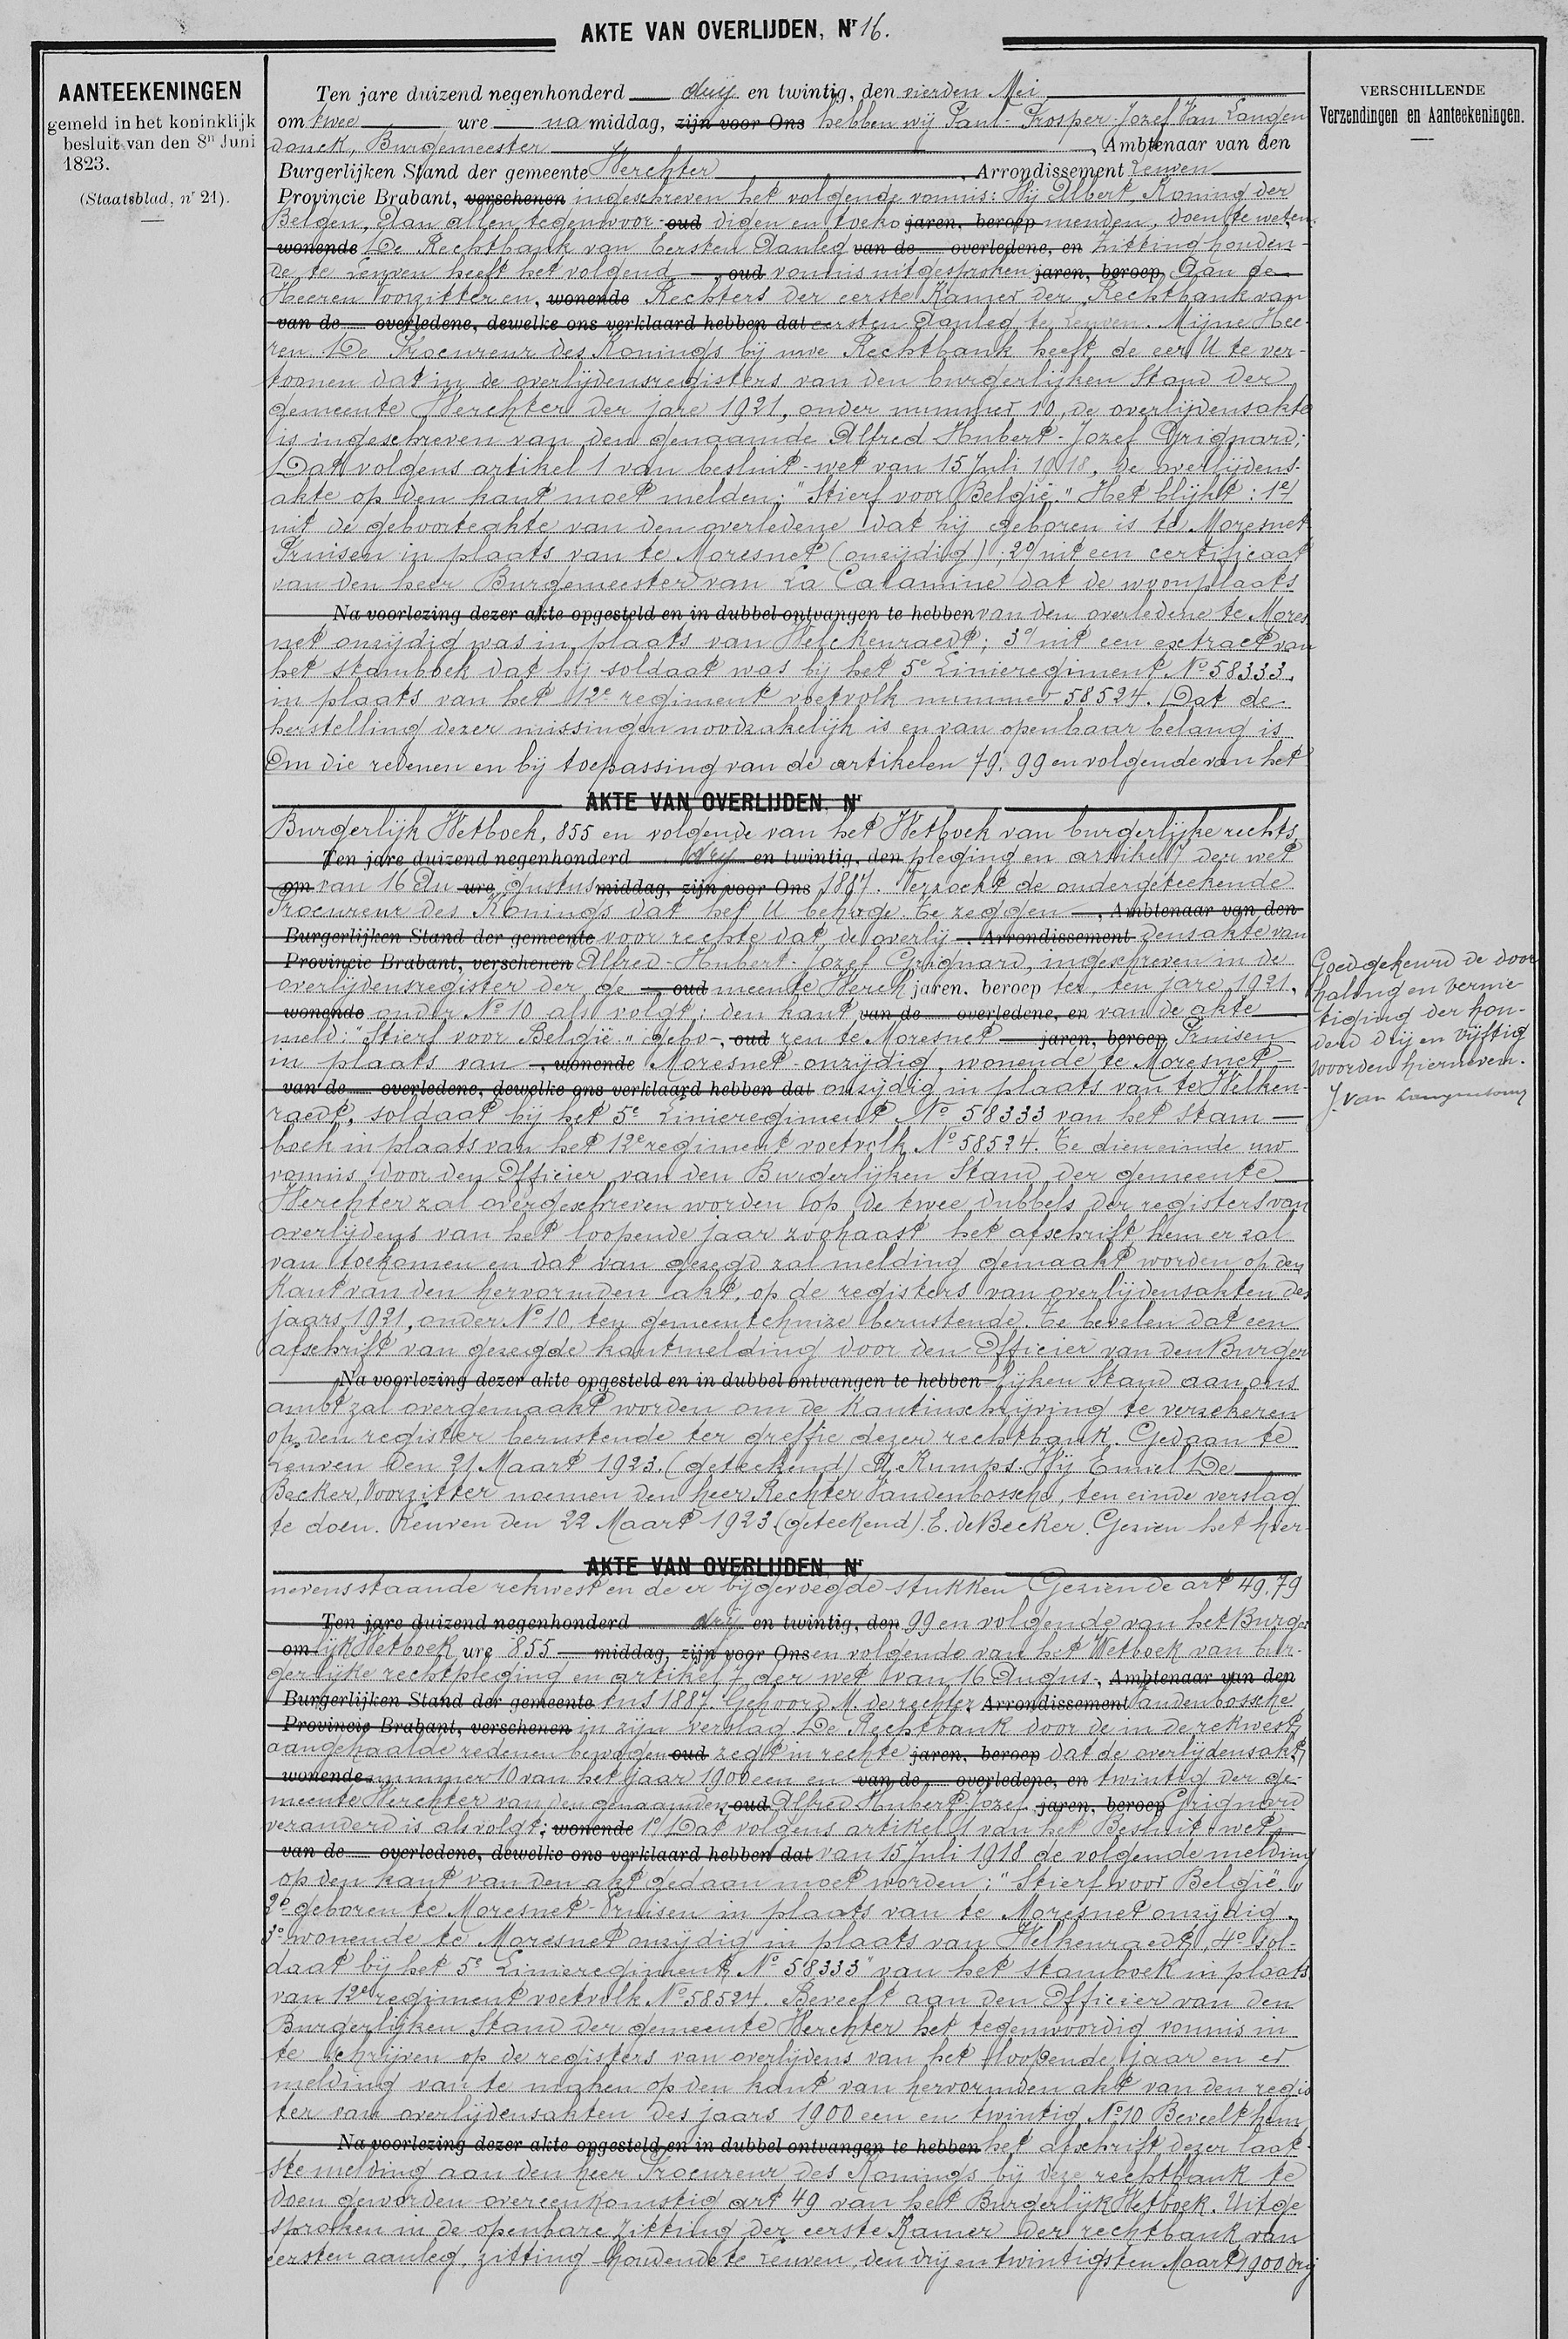 AKTE VAN OVERLIJDEN, Nr 16.
AANTEEKENINGEN
gemeld in het koninklijk
besluit van den 8n Juni
1823.
(Staatsblad, nr 21).
Ten jare duizend negenhonderd drij en twintig, den vierden Mei
om twee ure na middag, zijn voor Ons hebben wij Paul-Prosper-Jozef Van Langen
donck, Burgemeester, Ambtenaar van den
Burgerlijken Stand der gemeente Werchter, Arrondissement Leuven
Provincie Brabant, verschenen ingeschreven het volgende vonnis: Wij Albert, Koning der
Belgen, Aan allen tegenwoor- oud digen en toeko jaren, beroep menden, doen te weten.
wonende De Rechtbank van Eersten Aanleg van de overledene, en zitting houden-
de te Leuven heeft het volgend, oud vonnis uitgesproken jaren, beroep Aan de
Heeren Voorzitter en, wonende Rechters der eerste Kamer der Rechtbank van
van de overledene, dewelke ons verklaard hebben dat eersten Aanleg te Leuven. Mijne Hee-
ren De Procureur des Konings bij uwe Rechtbank heeft de eer U te ver-
toonen dat in de overlijdensregisters van den burgerlijken Stand der
gemeente Werchter der jare 1921, onder nummer 10, de overlijdensakte
is ingeschreven van den genaamde Alfred Hubert-Jozef Grignard;
Dat volgens artikel 1 van besluit-wet van 15 Juli 1918, de overlijdens-
akte op den kant moet melden: "Stierf voor België." Het blijkt: 1e/
uit de geboorteakte van den overledene dat hij geboren is te Moresnet
Pruisen in plaats van te Moresnet (onzijdig); 2o/ uit een certificaat
van den heer Burgemeester van La Calamine dat de woonplaats
Na voorlezing dezer akte opgesteld en in dubbel ontvangen te hebben van den overledene te Mores
net onzijdig was in plaats van Welckenraedt; 3o/ uit een extract van
het stamboek dat hij soldaat was bij het 5e Linieregiment No 58333.
in plaats van het 12e regiment voetvolk nummer 58524. Dat de
herstelling dezer missingen noodzakelijk is en van openbaar belang is
Om die redenen en bij toepassing van de artikelen 79. 99 en volgende van het
AKTE VAN OVERLIJDEN, Nr
Burgerlijk Wetboek, 855 en volgende van het Wetboek van burgerlijke rechts
Ten jare duizend negenhonderd drij en twintig, den pleging en artikel 7 der wet
om van 16 Au ure gustus middag, zijn voor Ons 1887. Verzoekt de ondergeteekende
Procureur des Konings dat het U behage te zeggen, Ambtenaar van den
Burgerlijken Stand der gemeente voor rechte dat de overlij-, Arrondissement densakte van
Provincie Brabant, verschenen Alfred-Hubert-Jozef Grignard, ingeschreven in de
overlijdensregister der ge, oud meente Werch jaren, beroep ter, ten jare 1921,
wonende onder No 10 als volgt: den kant van de overledene, en van de akte
meld: "Stierf voor België." gebo-, oud ren te Moresnet jaren, beroep Pruisen
in plaats van, wonende Moresnet-onzijdig, wonende te Moresnet
van de overledene, dewelke ons verklaard hebben dat onzijdig in plaats van te Welken-
raedt, soldaat bij het 5e Linieregiment No 58333 van het stam-
boek in plaats van het 12e regiment voetvolk No 58524. Te dien einde uw
vonnis door den Officier van den Burgerlijken Stand der gemeente
Werchter zal overgeschreven worden op de twee dubbels der registers van
overlijdens van het loopende jaar zoohaast het afschrift hem er zal
van toekomen en dat van gezegd zal melding gemaakt worden op den
Kant van den hervormden akt, op de registers van overlijdensakten des
jaars 1921, onder No 10, ten gemeentehuize berustende. Te bevelen dat een
afschrift van gezegde kantmelding door den Officier van den Burger
Na voorlezing dezer akte opgesteld en in dubbel ontvangen te hebben lijken Stand aan ons
ambt zal overgemaakt worden om de Kantinschrijving te verzekeren
op den register berustende ter greffie dezer rechtbank. Gedaan te
Leuven den 21 Maart 1923. (geteekend) A. Kumps. Wij Emiel De
Becker, Voorzitter noemen den heer Rechter Vandenbossche, ten einde verslag
te doen. Leuven den 22 Maart 1923 (geteekend). E. de Becker. Gezien het hier-
AKTE VAN OVERLIJDEN, Nr
nevensstaande rekwest en de er bijgevoegde stukken Gezien de art 49. 79
Ten jare duizend negenhonderd drij en twintig, den 99 en volgende van het Burger
om lijk Wetboek ure 855 middag, zijn voor Ons en volgende van het Wetboek van bur-
gerlijke rechtpleging en artikel 7 der wet van 16 Augus-, Ambtenaar van den
Burgerlijken Stand der gemeente tus 1887. Gehoord M. de rechter, Arrondissement Vandenbossche
Provincie Brabant, verschenen in zijn verslag De Rechtbank door de in de rekwest
aangehaalde redenen bewogen oud zegt in rechte jaren, beroep dat de overlijdensakt
wonende nummer 10 van het jaar 1900 een en van de overledene, en twintig der ge-
meente Werchter van den genaamden, oud Alfred Hubert Jozef jaren, beroep Grignard
veranderd is als volgt: wonende 1o/ Dat volgens artikel 1 van het Besluit-wet
van de overledene, dewelke ons verklaard hebben dat van 15 Juli 1918 de volgende melding
op den kant van den akt gedaan moet worden: "Stierf voor België."
2o geboren te Moresnet-Pruisen in plaats van te Moresnet onzijdig.
3o wonende te Moresnet onzijdig in plaats van Welkenraedt, 4o sol-
daat bij het 5e Linieregiment No 58333 van het stamboek in plaats
van 12e regiment voetvolk No 58524. Beveelt aan den Officier van den
Burgerlijken Stand der gemeente Werchter het tegenwoordig vonnis in
te schrijven op de registers van overlijdens van het loopende jaar en er
melding van te maken op den kant van hervormden akt van den regis
ter van overlijdensakten des jaars 1900 een en twintig No 10 Beveelt hem
Na voorlezing dezer akte opgesteld en in dubbel ontvangen te hebben het afschrift dezer laat-
ste melding aan den heer Procureur des Konings bij deze rechtbank te
doen geworden overeenkomstig art 49 van het Burgerlijk Wetboek. Uitge
sproken in de openbare zitting der eerste Kamer der rechtbank van
eersten aanleg, zitting houdende te Leuven, den drij en twintigsten Maart 1900 drij
VERSCHILLENDE
Verzendingen en Aanteekeningen.
Goedgekeurd de door
haling en vernie
tiging der hon-
derd drij en vijftig
woorden hierneven.